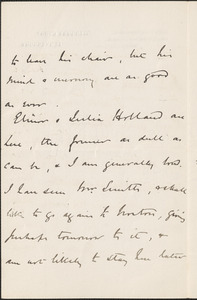 to leave his chair, but his
mind & memory are as good
as ever.
Elinor & Lelia Holland are
here, the former as dull as
can be, & I am generally bored.
I have seen Mr Smith, & shall
to go again to Norton, going
perhaps tomorrow to it, &
am not likely to stay here later